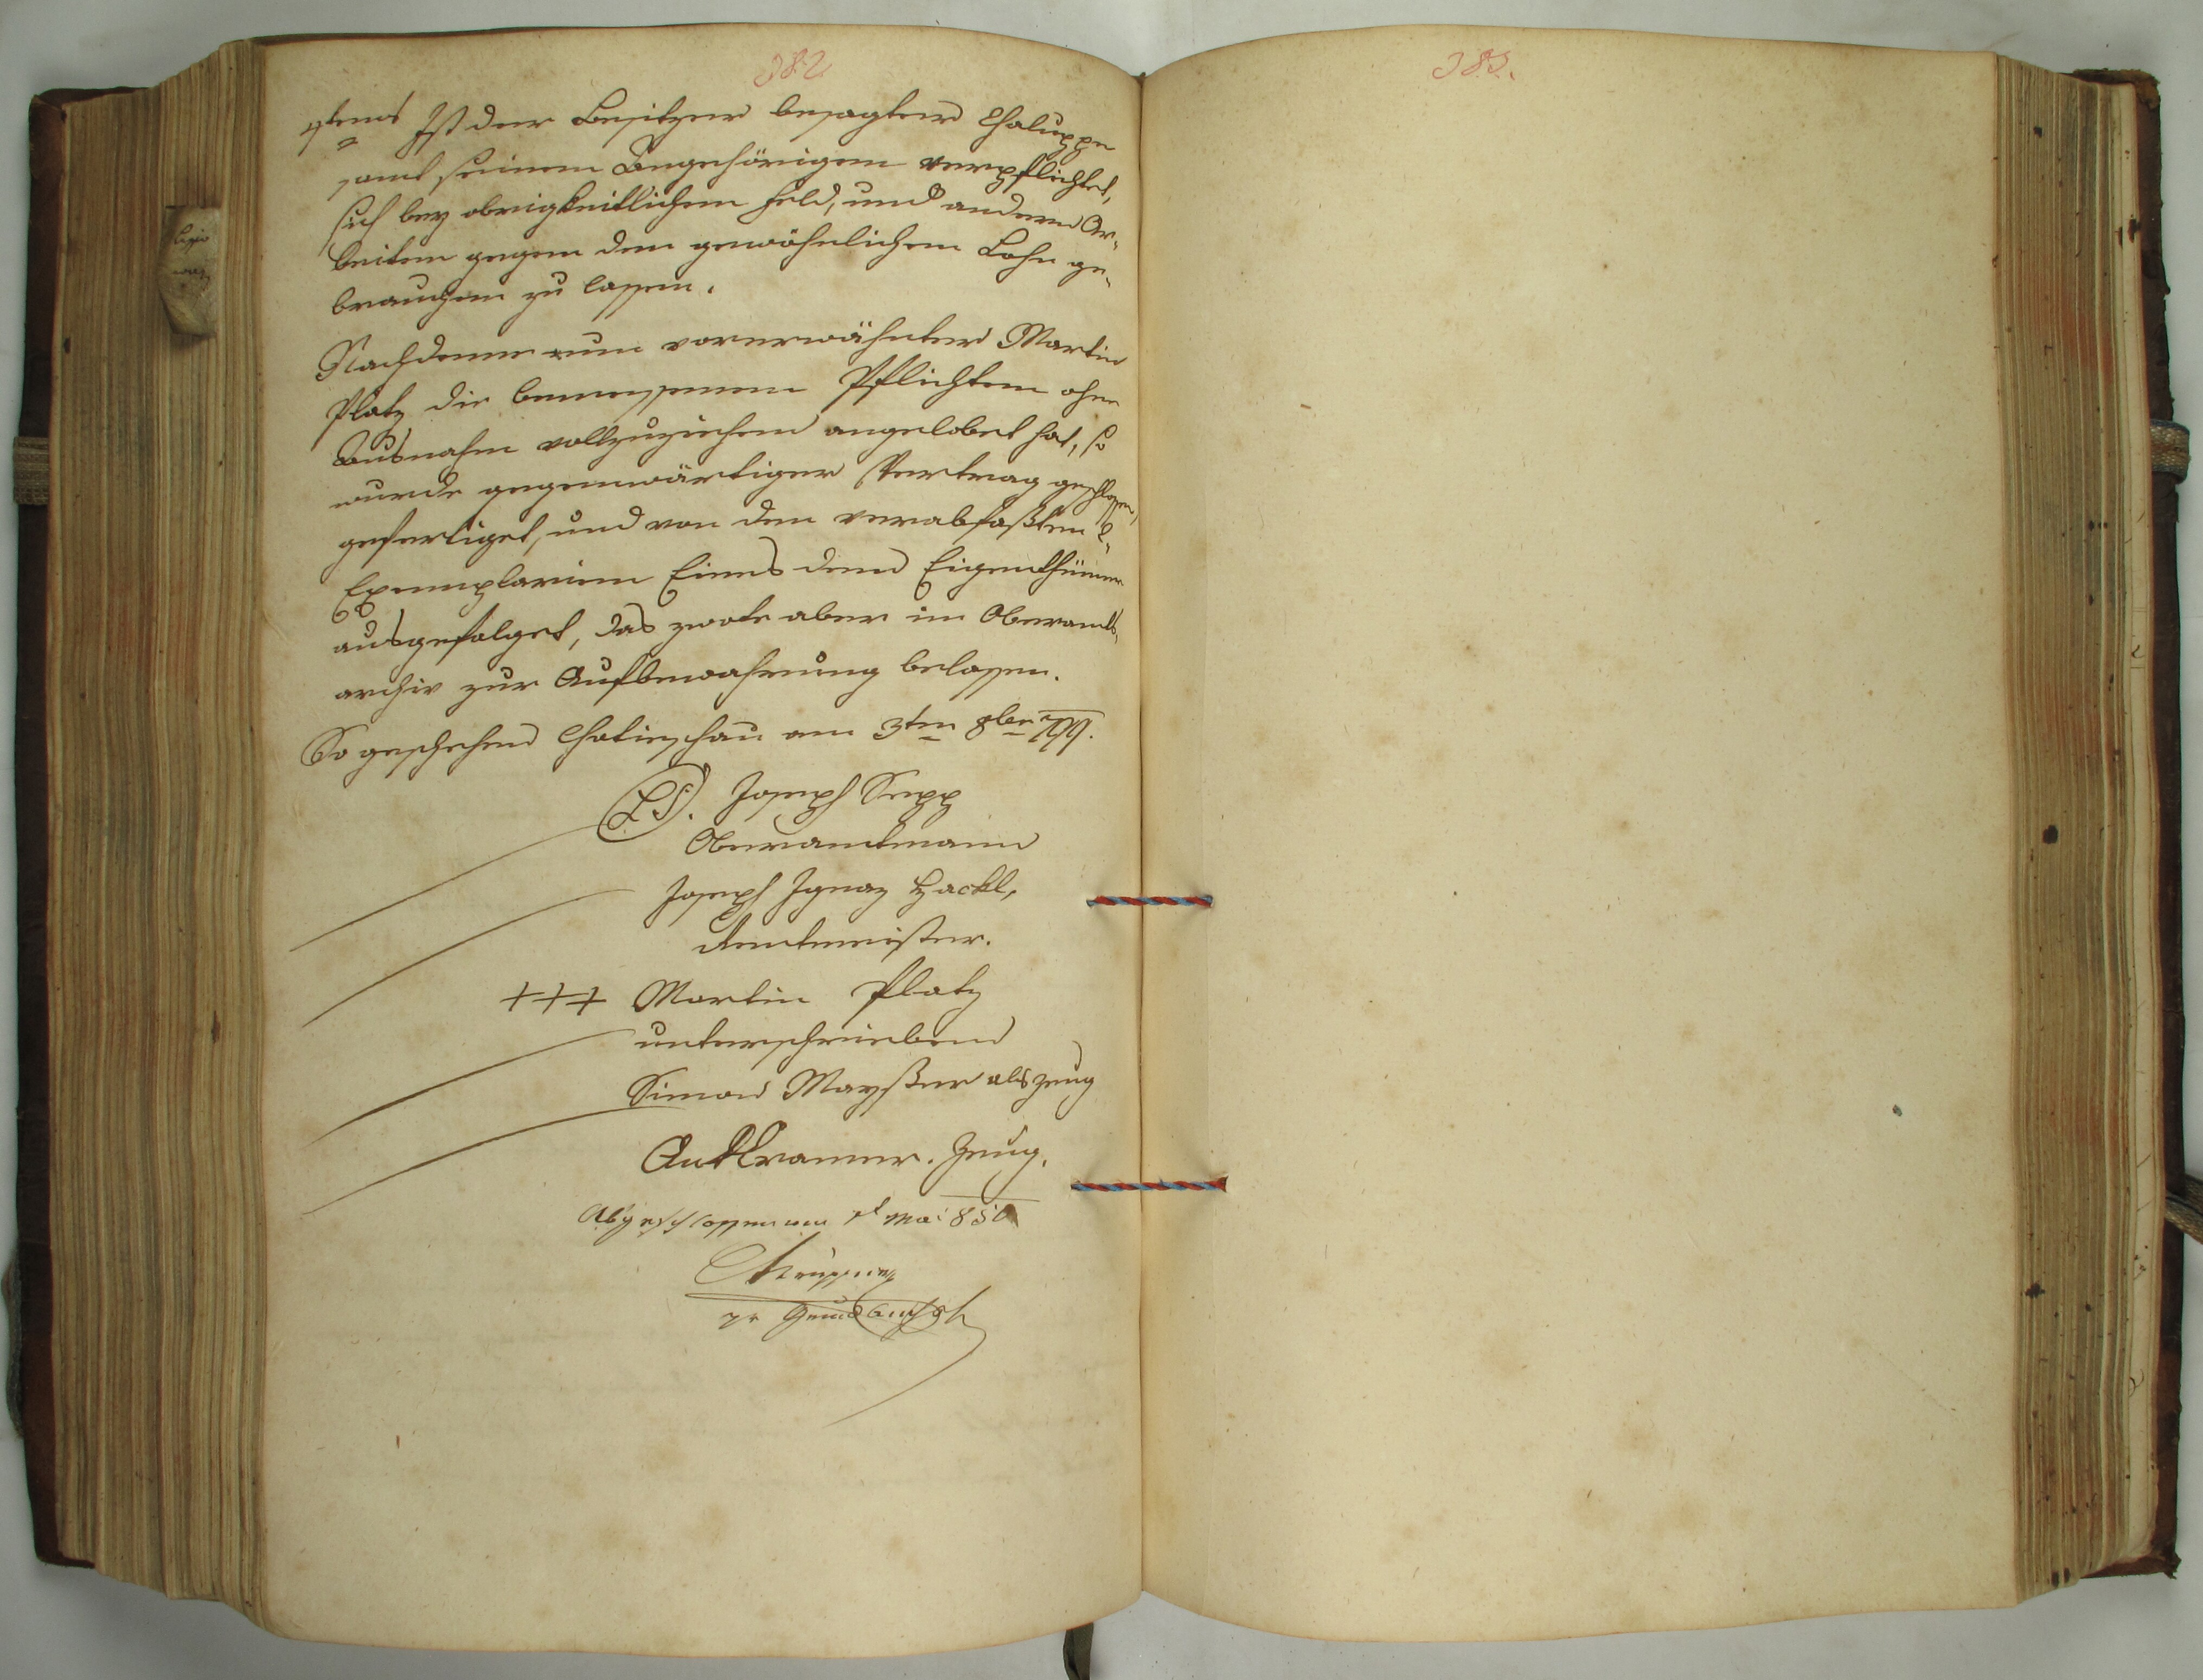 382.
4tens Ist der Besitzer besagter Chaluppe
samt seinen Angehörigen verpflichtet,
sich bey obrigkeitlichen Feld, und andern Ar-
beiten gegen den gewöhnlichen Lohn ge-
brauchen zu lassen.
Nachdeme nun vorerwähnter Martin
Platz die bemessenen Pflichten ohne
Ausnahm vollzuziehen angelobet hat, so
wurde gegenwärtiger Vertrag geschlossen,
gefertiget, und von den verabfaßten 2
Exemplarien Eines dem Eigenthümer
ausgefolget, das zwote aber im Oberamts-
archiv zur Aufbewahrung belassen.
So geschehen Chotieschau am 3ten 8ber 799.
(LS). Joseph Sepp
Oberamtmann
Joseph Ignaz Hackl,
Rentmeister.
+++ Martin Platz
unterschrieben
Simon Mayßner als Zeug
Ant Kramer. Zeug.
Abgeschlossen am Mai 850
383.